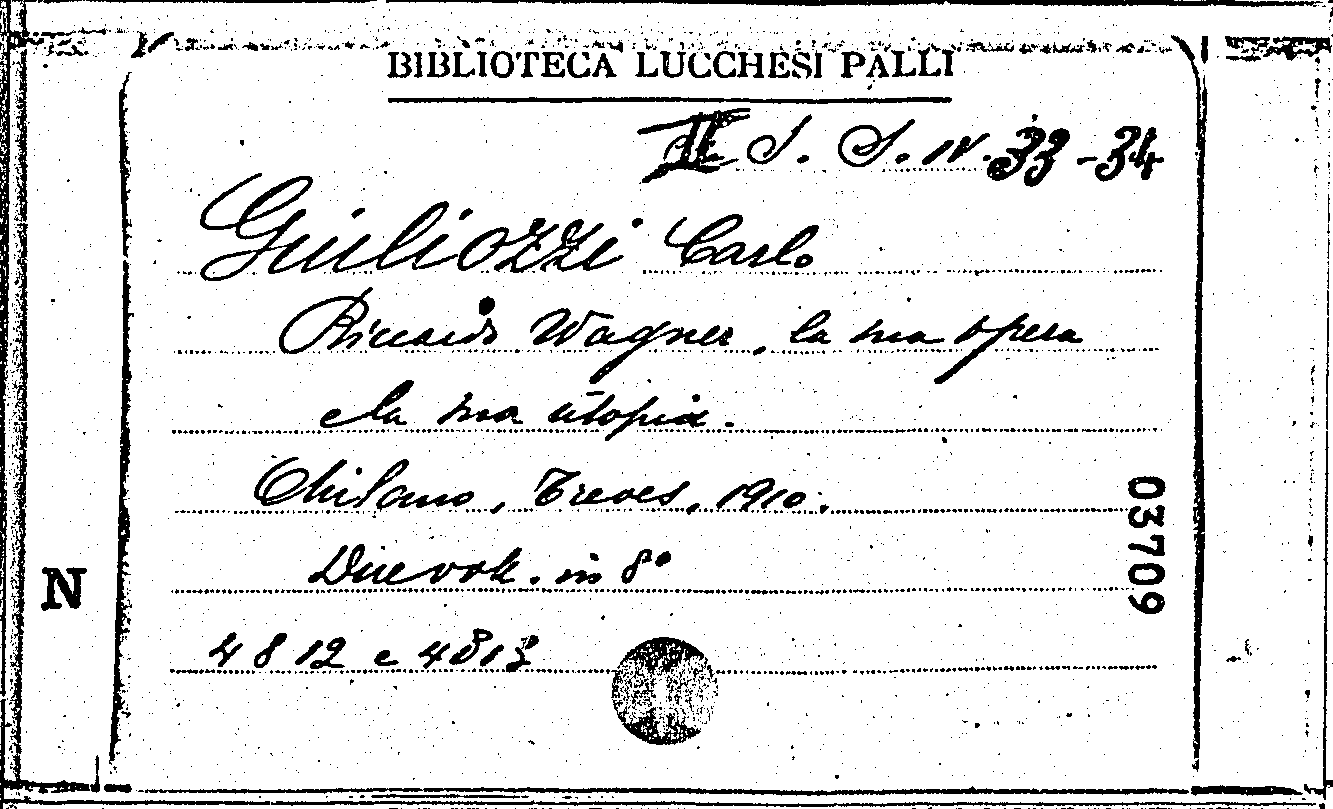 BIBLIOTECA LUCCHESI PALLI
II S. S. IV. 33-34
Giuliozzi Carlo
Riccardo Wagner, la sua opera
e la sua utopia.
Milano, Treves, 1910.
Due voll. in 8°
4812 e 4813
03709
N